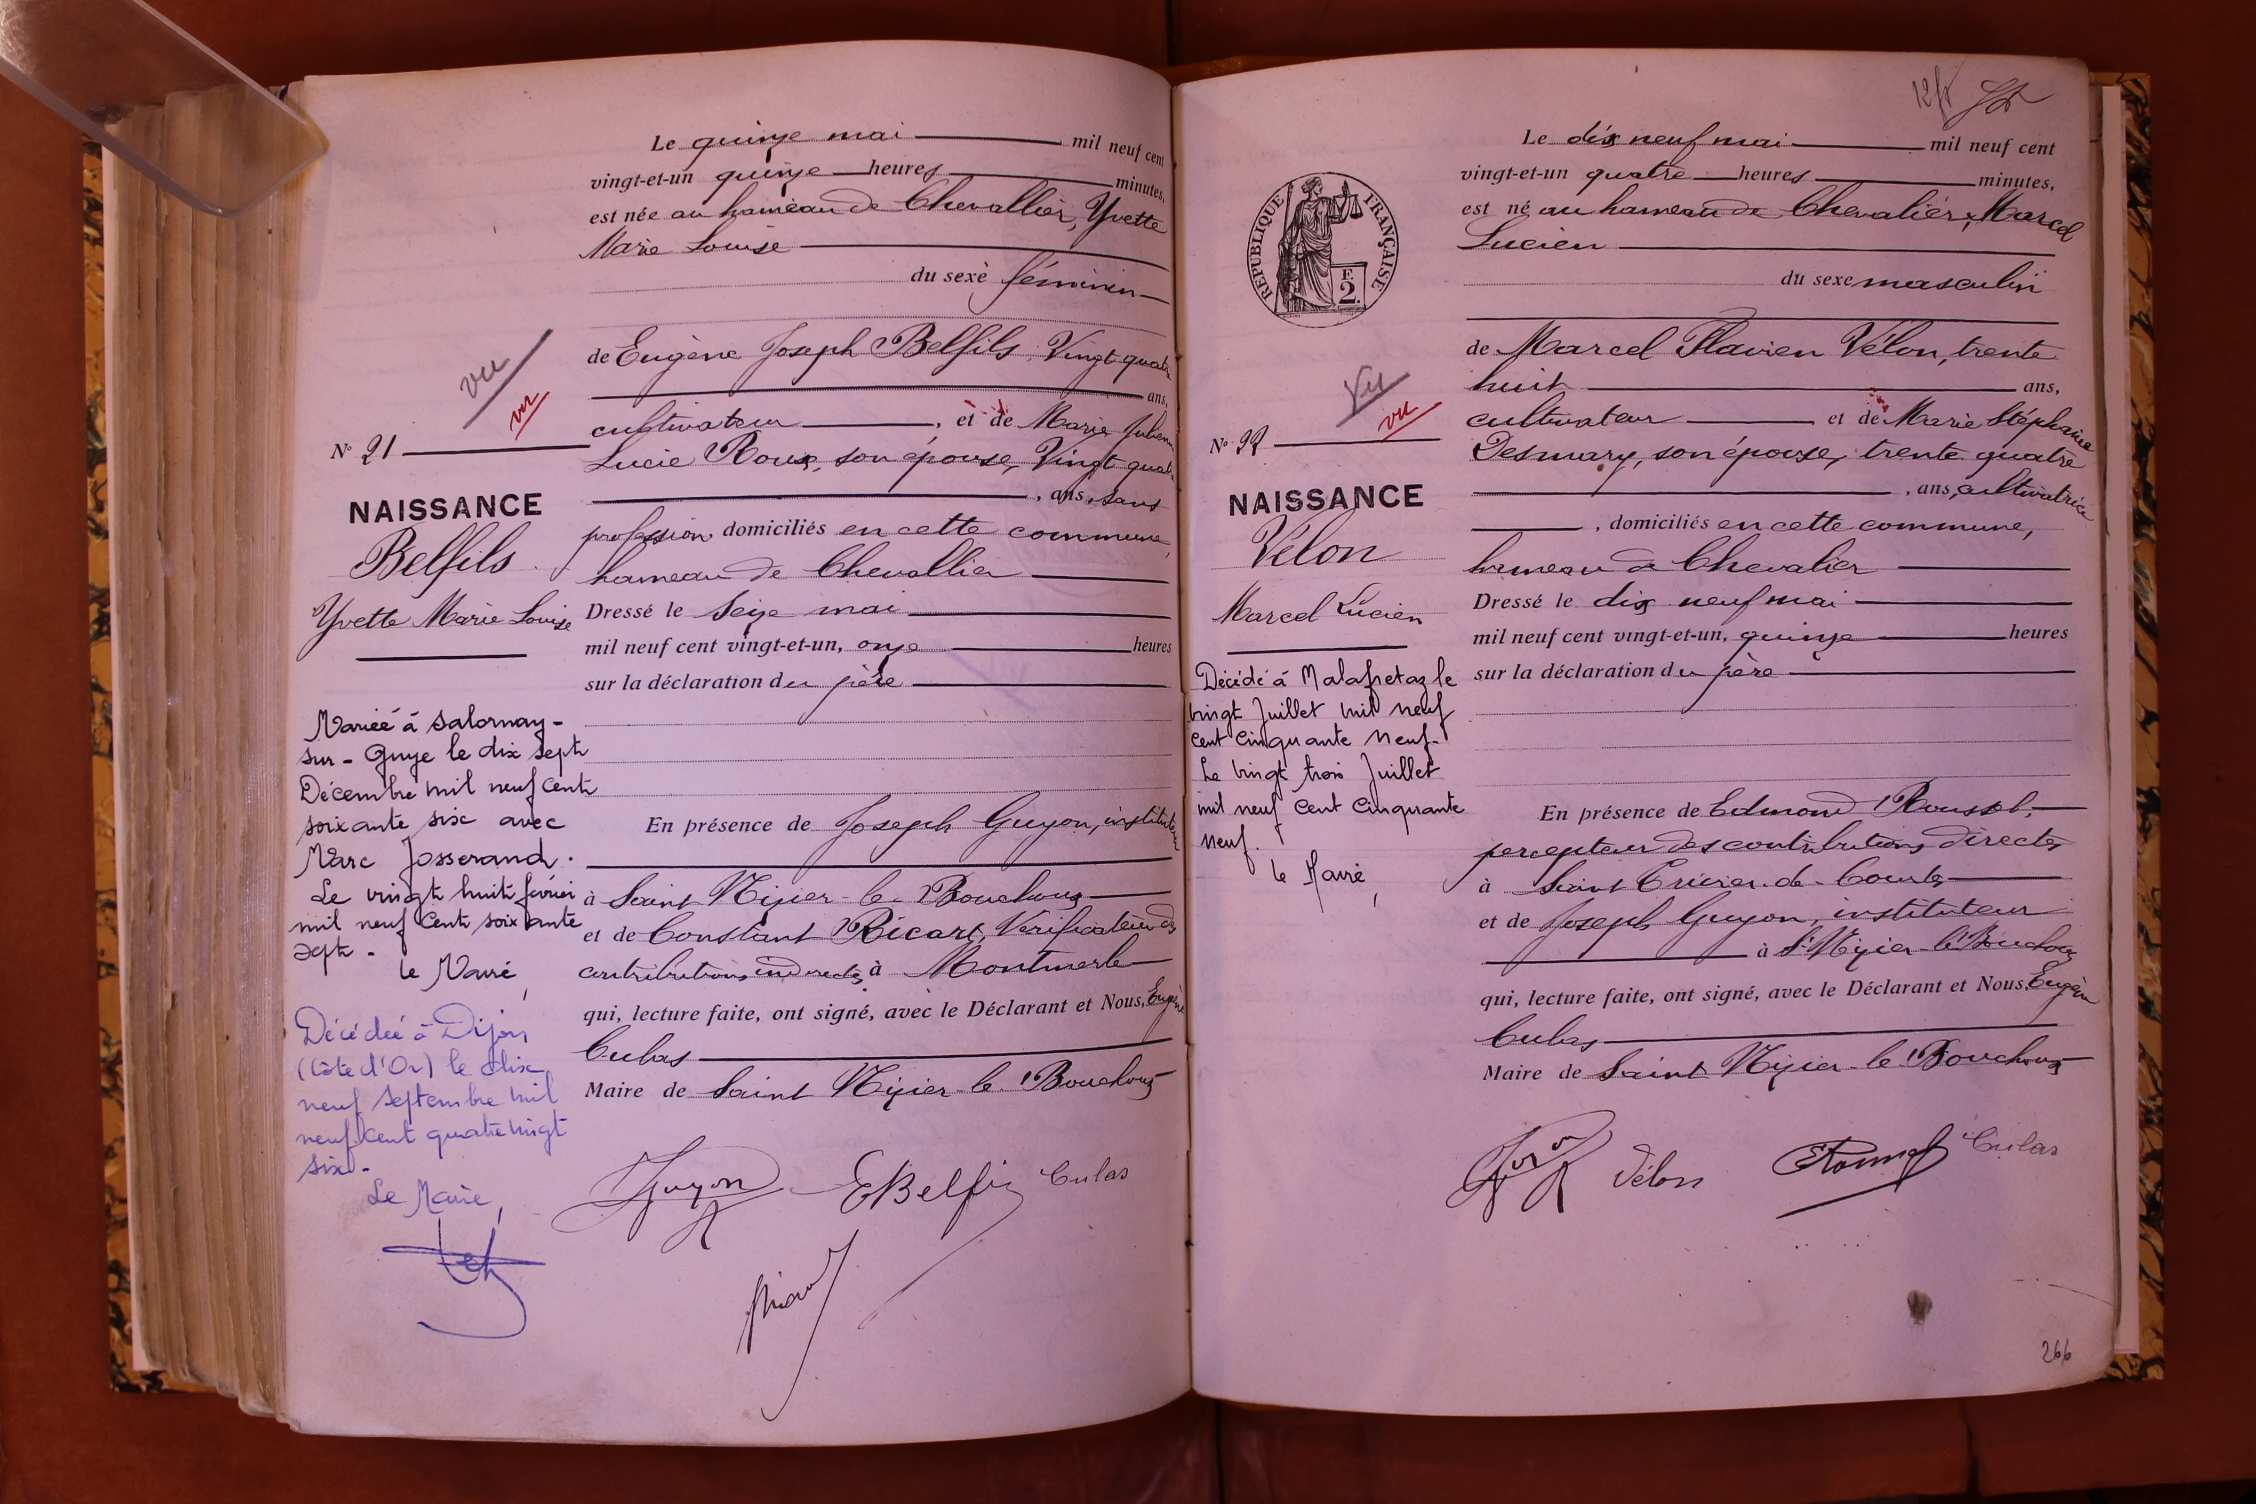 Le quinze mai mil neuf cent
vingt-et-un quinze heures minutes,
est née au hameau de Chevallier, Yvette
Marie Louise
du sexe féminin
de Eugène Joseph Belfils, Vingt quatre
ans,
cultivateur, et de Marie Julienne
Lucie Roux, son épouse, Vingt quatre
, ans, sans
profession, domiciliés en cette commune,
hameau de Chevallier
Dressé le seize mai
mil neuf cent vingt-et-un, onze heures
sur la déclaration du père
En présence de Joseph Guyon, instituteur
à Saint Nizier-le-Bouchoux
et de Constant Ricart, Vérificateur des
contributions indirectes, à Montmerle
qui, lecture faite, ont signé, avec le Déclarant et Nous, Eugène
Culas
Maire de Saint Nizier-le-Bouchoux
Guyon EBelfils Culas
vu
vu
No 21
NAISSANCE
Belfils
Yvette Marie Louise
Mariée à Salornay-
sur-Guye le dix sept
Décembre mil neuf cent
soixante six avec
Marc Josserand.
Le vingt huit février
mil neuf cent soixante
sept.
Le Maire,
Décédée à Dijon
(Côte d'Or) le dix
neuf septembre mil
neuf cent quatre vingt
six.
Le Maire,
Le dix neuf mai mil neuf cent
vingt-et-un quatre heures minutes,
est né au hameau de Chevalier, Marcel
Lucien
du sexe masculin
de Marcel Flavien Vélon, trente
huit ans,
cultivateur et de Marie Stéphanie
Desmary, son épouse, trente quatre
, ans, cultivatrice
, domiciliés en cette commune,
hameau de Chevalier
Dressé le dix neuf mai
mil neuf cent vingt-et-un, quinze heures
sur la déclaration du père
En présence de Edmond
percepteur des contributions directes
à Saint Trivier-de-Courtes
et de Joseph Guyon, instituteur
à St Nizier-le-Bouchoux
qui, lecture faite, ont signé, avec le Déclarant et Nous, Eugène
Culas
Maire de Saint Nizier-le-Bouchoux
Vélon Culas
RÉPUBLIQUE FRANÇAISE
F.
2.
Vu
vu
No 22
NAISSANCE
Vélon
Marcel Lucien
Décédé à Malafretaz le
vingt Juillet mil neuf
cent cinquante neuf.
Le vingt trois Juillet
mil neuf cent cinquante
neuf.
Le Maire,
266